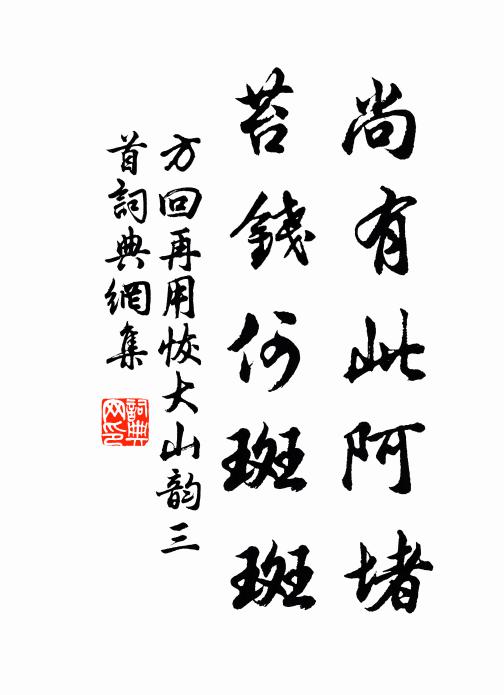 尚有此阿堵
苔錢何斑斑
方回再用恢大山韵三
首詞典網集
詞典网印